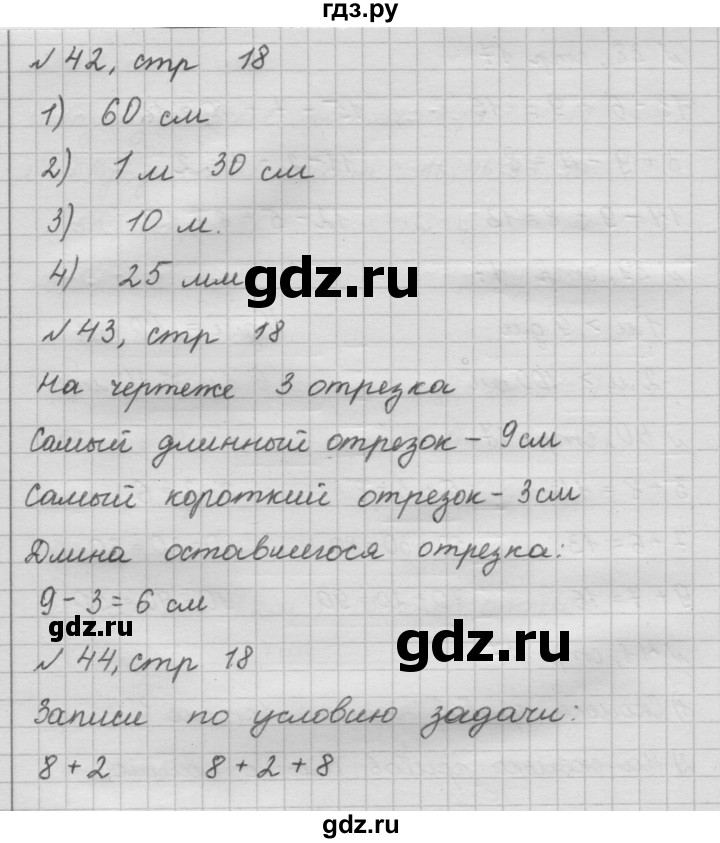 гдз.ру
№ 42, стр 18
1) 60 см
2) 1 м 30 см
3) 10 м.
4) 25 мм
gdz.ru
№ 43, стр 18
На чертеже 3 отрезка
Самый длинный отрезок - 9 см
Самый короткий отрезок - 3 см
Длина оставшегося отрезка:
9 - 3 = 6 см
gdz.ru
gdz.ru
№ 44, стр 18
Записи по условию задачи:
8 + 2 8 + 2 + 8
gdz.ru